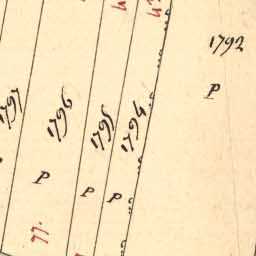 1792
P
1797
1796
1795
1794
P
P
P
77.